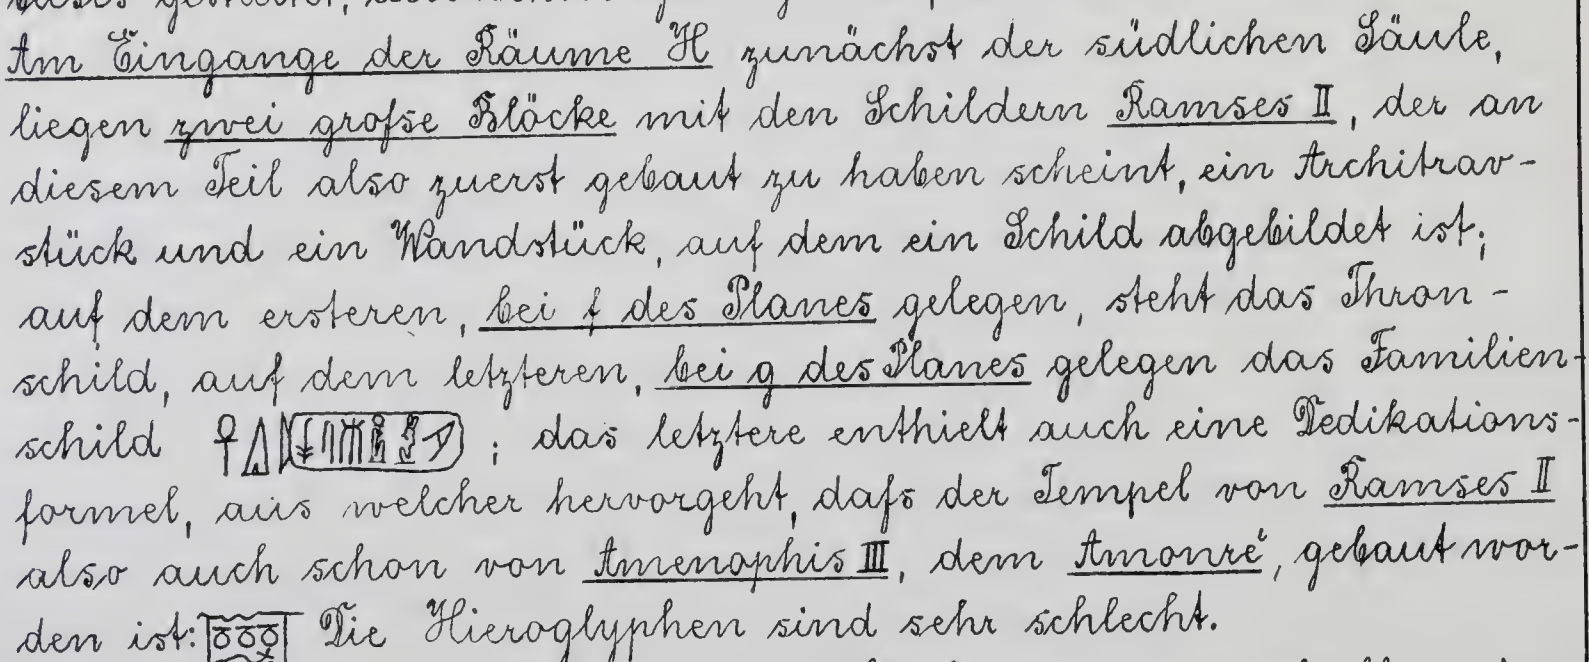 Am Eingange der Räume H zunächst der südlichen Säule,
liegen zwei grofse Blöcke mit den Schildern Ramses II, der an
diesem Teil also zuerst gebaut zu haben scheint, ein Architrav-
stück und ein Wandstück, auf dem ein Schild abgebildet ist;
auf dem ersteren, bei f des Planes gelegen, steht das Thron-
schild, auf dem letzteren, bei g des Planes gelegen das Familien-
schild ; das letztere enthielt auch eine Dedikations-
formel, aus welcher hervorgeht, dafs der Tempel von Ramses II
also auch schon von Amenophis III, dem Amonré, gebaut wor-
den ist: Die Hieroglyphen sind sehr schlecht.